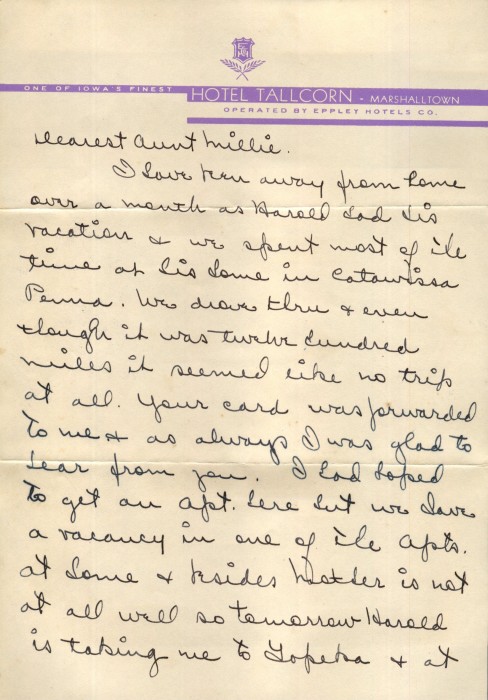 ONE OF IOWA'S FINEST
HOTEL TALLCORN - MARSHALLTOWN
OPERATED BY EPPLEY HOTELS CO.
Dearest Aunt Millie.
I have been away from home
over a month as Harold had his
vacation & we spent most of the
time at his home in Catawissa
Penna. We drove thru & even
though it was twelve hundred
miles it seemed like no trip
at all. Your card was forwarded
to me & as always I was glad to
hear from you. I had hoped
to get an apt. here but we have
a vacancy in one of the apts.
at home & besides Mother is not
at all well so tomorrow Harold
is taking me to Topeka & at